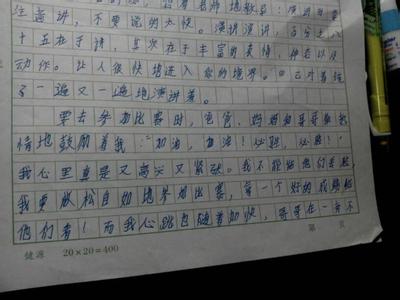 注意讲，不要说的太快。演讲演讲，百分之八
十五在于讲，其次在于丰富的表情，神态以及
动作。让人很快地进入你的境界。"已对着镜
了一遍又一遍地演讲着。
要去参加比赛时，爸爸、妈妈和哥哥都热
情地鼓励着我："加油，加油！必胜，必胜！"
我心里真是又高兴又紧张。我不能给他们丢脸
我要放松自如地参加比赛，拿一个好的成绩给
他们看！而我心跳也随着加快，哥哥在一旁不
健源 20×20=400 第 页